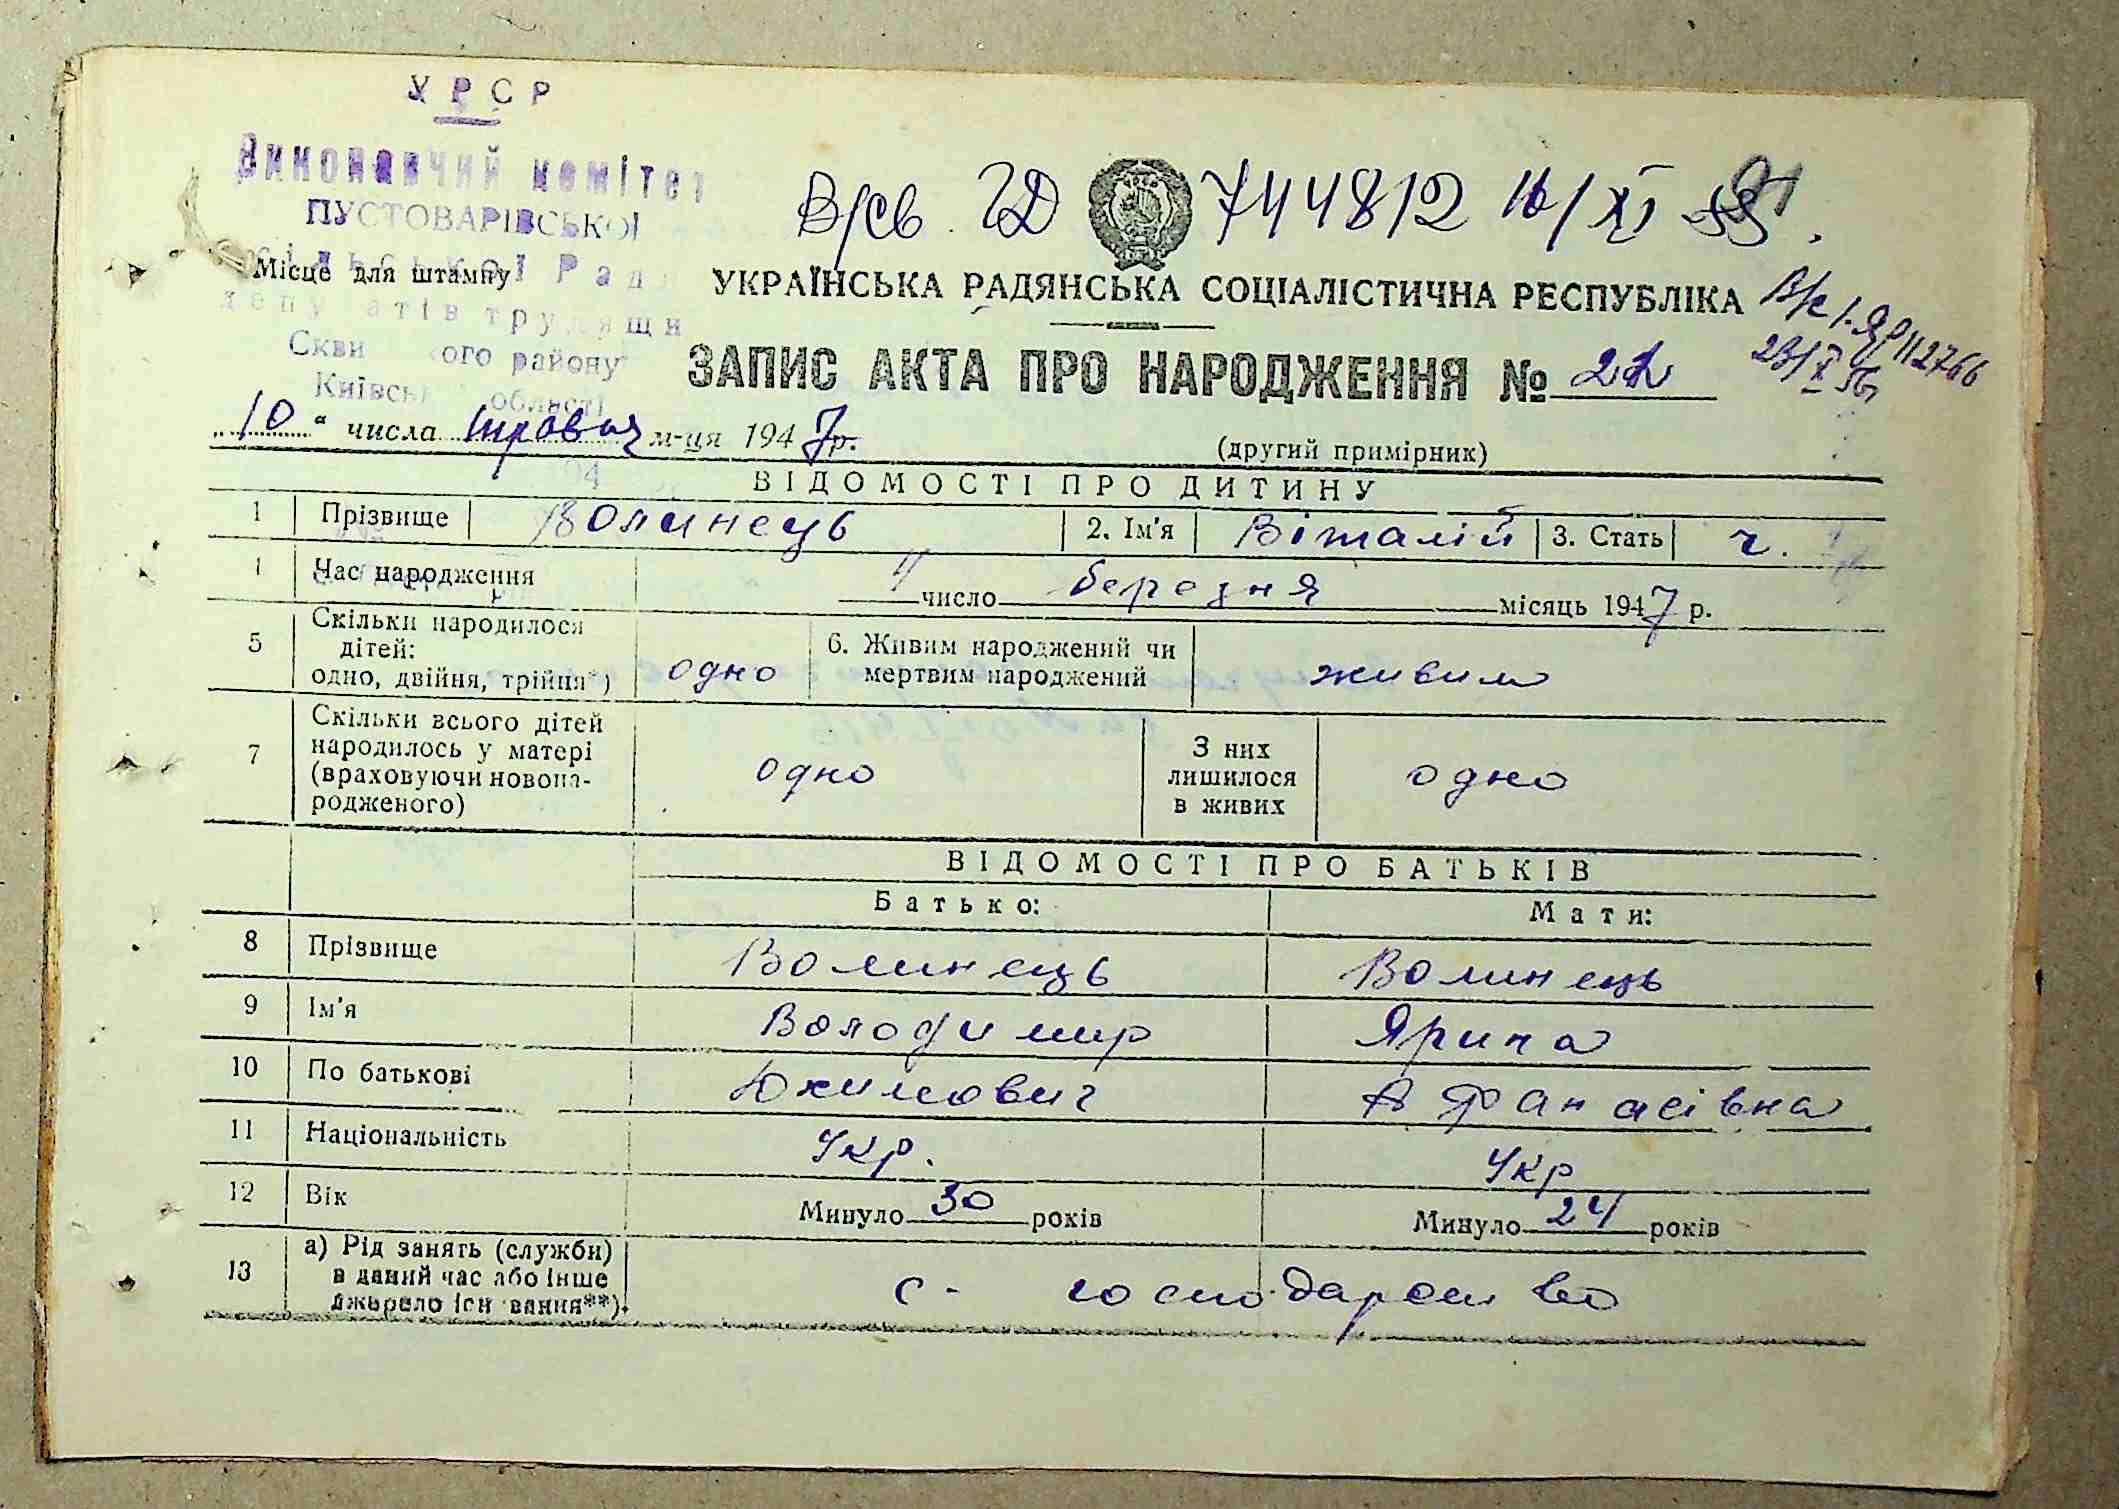 УРСР
Виконавчий комітет
ПУСТОВАРІВСЬКОЇ
сільської Ради
депутатів трудящи
Скви ого району
Київсь області
Місце для штампу
В/св. ГД 744812 16/XI
УКРАЇНСЬКА РАДЯНСЬКА СОЦІАЛІСТИЧНА РЕСПУБЛІКА
112766
ЗАПИС АКТА ПРО НАРОДЖЕННЯ №
„10“ числа травня м-ця 1947 р.
(другий примірник)
ВІДОМОСТІ ПРО ДИТИНУ
1 Прізвище Волинець 2. Ім'я Віталій 3. Стать ч.
4 Час народження 4 число березня місяць 1947 р.
5 Скільки народилося дітей: одно, двійня, трійня*) одно 6. Живим народжений чи мертвим народжений живим
7 Скільки всього дітей народилось у матері (враховуючи новона-родженого) одно З них лишилося в живих одно
ВІДОМОСТІ ПРО БАТЬКІВ
Батько: Мати:
8 Прізвище Волинець Волинець
9 Ім'я Володимир Ярина
10 По батькові Юхимович Афанасівна
11 Національність Укр. Укр
12 Вік Минуло 30 років Минуло 24 років
13 а) Рід занять (служби) в даний час або інше джерело існ вання**). с - господарство